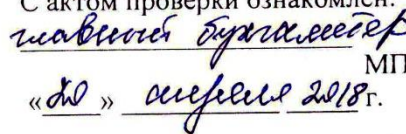 С актом проверки ознакомлен:
главный бухгалтер
МП
«20» апреля 2018 г.